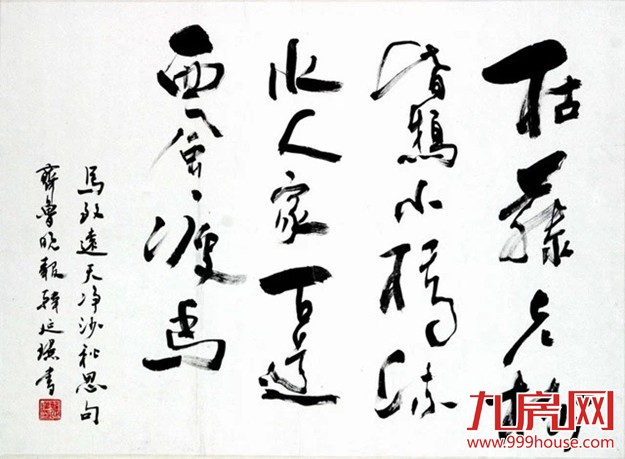 枯藤老树
昏鸦小桥流
水人家古道
西风瘦马
马致远天净沙秋思句
齐鲁晚报韩延 书
九房网
www.999house.com